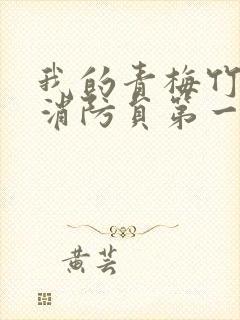 我的青梅竹
消防员第一
黄芸